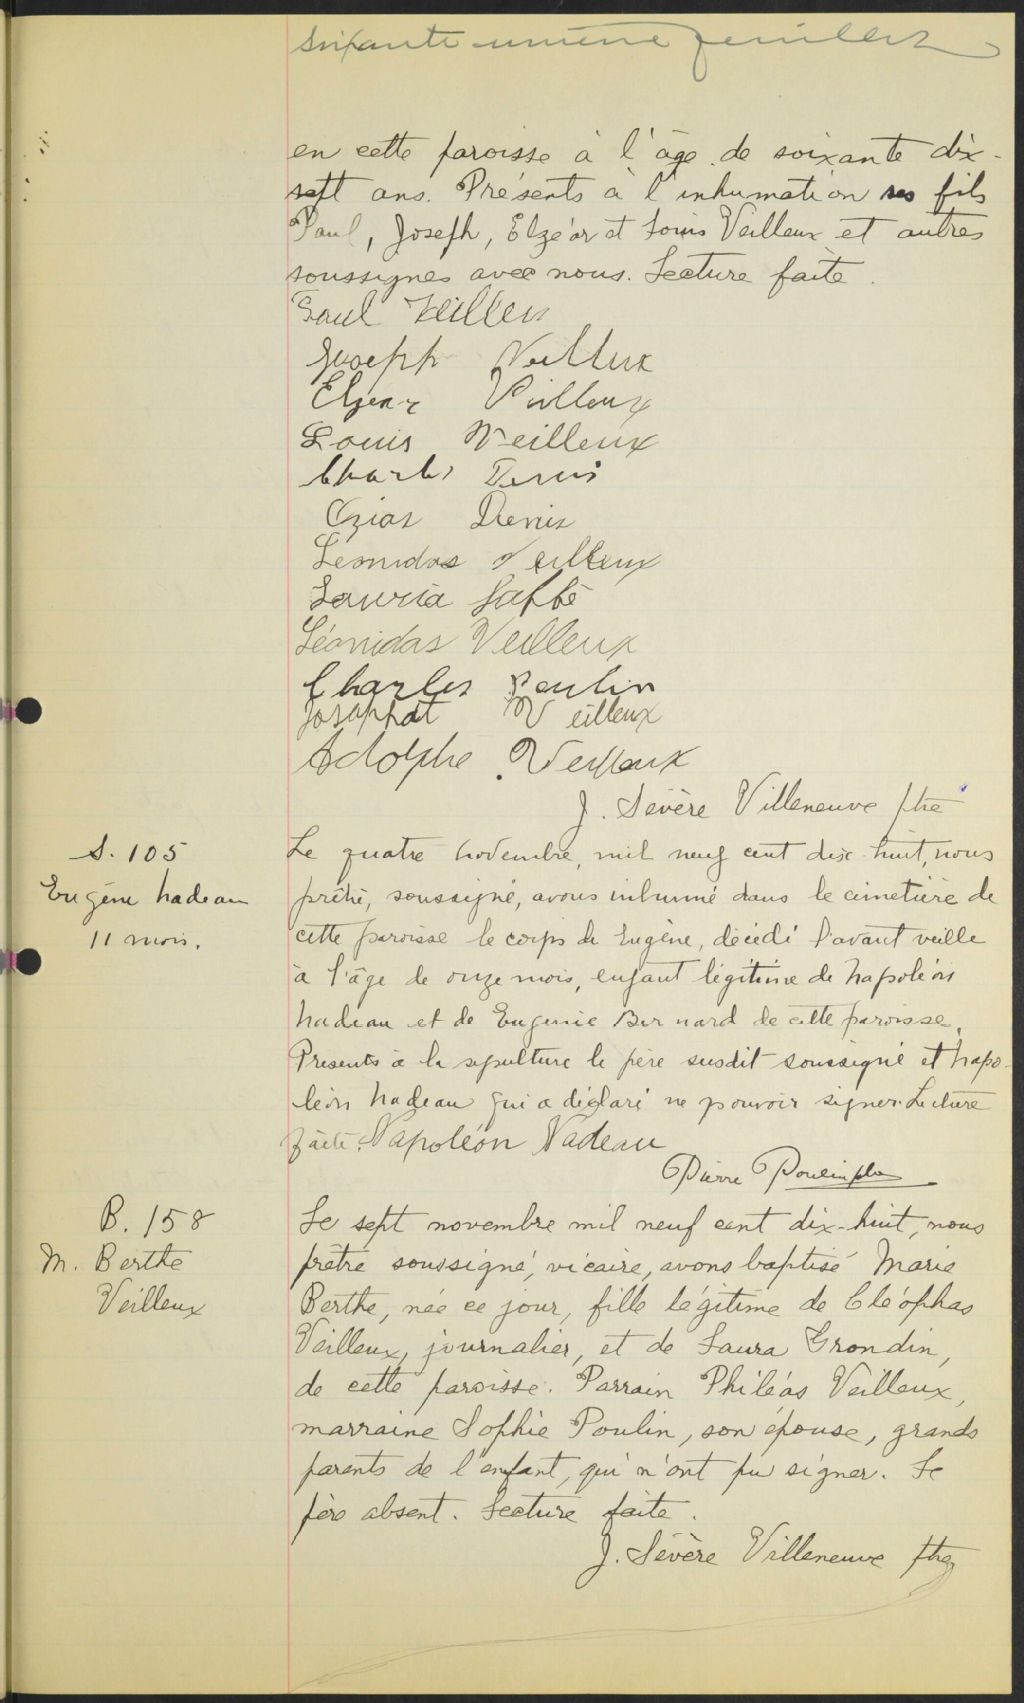 Soixante-unième feuillet
en cette paroisse à l'âge de soixante dix-
sept ans. Présents à l'inhumation ses fils
Paul, Joseph, Elzéar et Louis Veilleux et autres
soussignés avec nous. Lecture faite.
Paul Veilleu
Joseph Veilleux
Elzear Veilleux
Louis Veilleux
Charles Denis
Ozias Denis
Leonidas Veilleux
Lauréa Labbé
Léonidas Veilleux
Charles Poulin
Josaphat Veilleux
Adolphe Veilleux
J. Sévère Villeneuve ptre
S. 105
Eugène Nadeau
11 mois.
Le quatre novembre, mil neuf cent dix-huit, nous
prêtre, soussigné, avons inhumé dans le cimetière de
cette paroisse le corps de Eugène, décédé l'avant veille
à l'âge de onze mois, enfant légitime de Napoléon
Nadeau et de Eugenie Bernard de cette paroisse.
Presents à la sepulture le père susdit soussigné et Napo-
léon Nadeau qui a déclaré ne pouvoir signer. Lecture
faite. Napoléon Nadeau
Pierre Poulin ptre
B. 158
M. Berthe
Veilleux
Le sept novembre mil neuf cent dix-huit, nous
prêtre soussigné, vicaire, avons baptisé Marie
Berthe, née ce jour, fille légitime de Cléophas
Veilleux, journalier, et de Laura Grondin,
de cette paroisse. Parrain Philéas Veilleux,
marraine Sophie Poulin, son épouse, grands
parents de l'enfant, qui n'ont pu signer. Le
père absent. Lecture faite.
J. Sévère Villeneuve ptre